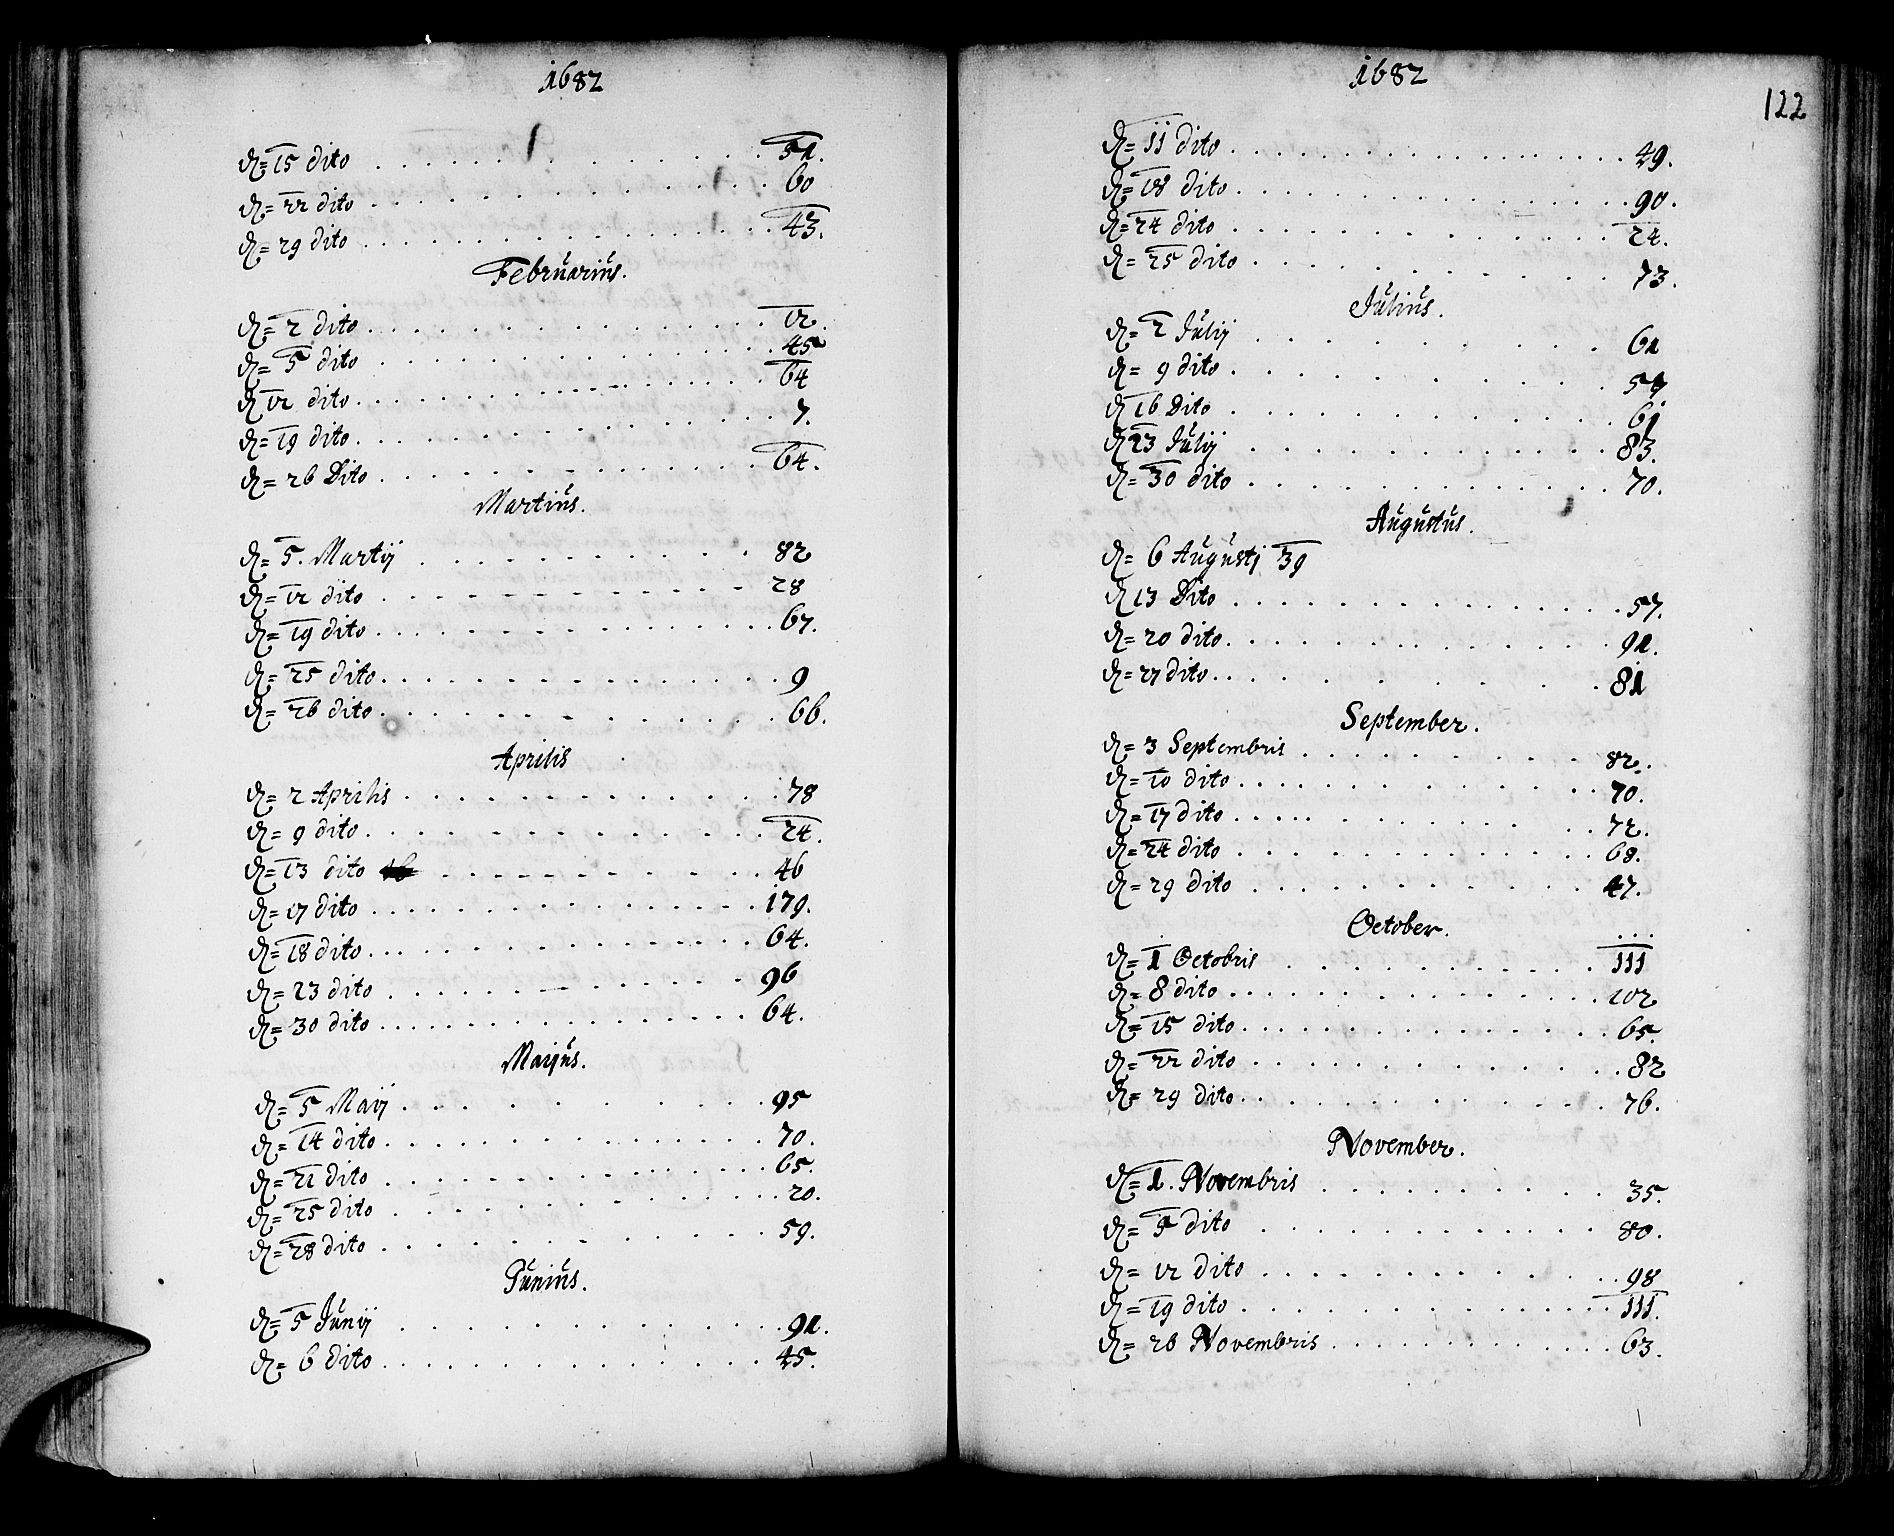 1682
D= 15 dito . . . . . . . . . . . . 51.
D= 22 dito . . . . . . . . . . . . 60
D= 29 dito . . . . . . . . . . . . 43.
Februarius.
D= 2 dito . . . . . . . . . . . . 12.
D= 5 dito . . . . . . . . . . . . 45
D 12 dito . . . . . . . . . . . . 64
D= 19 dito . . . . . . . . . . . . 7.
D= 26 Dito . . . . . . . . . . . . 64.
Martius.
D= 5. Martij . . . . . . . . . . . . 82
D= 12 dito . . . . . . . . . . . . 28
D= 19 dito . . . . . . . . . . . . 67.
D= 25 dito . . . . . . . . . . . . 9
D= 26 dito . . . . . . . . . . . . 66.
Aprilis
D= 2 Aprilis . . . . . . . . . . . . 78
D= 9 dito . . . . . . . . . . . . 24.
D= 13 dito . . . . . . . . . . . . 46
D= 17 dito . . . . . . . . . . . . 179.
D= 18 dito . . . . . . . . . . . . 64.
D= 23 dito . . . . . . . . . . . . 96
D= 30 dito . . . . . . . . . . . . 64.
Maijus.
D= 5 Maij . . . . . . . . . . . . 95
D= 14 dito . . . . . . . . . . . . 70.
D= 21 dito . . . . . . . . . . . . 65.
D= 25 dito . . . . . . . . . . . . 20.
D= 28 dito . . . . . . . . . . . . 59.
Junius.
D= 5 Junij . . . . . . . . . . . . 91.
D= 6 dito . . . . . . . . . . . . 45.
1682
122
D= 11 dito . . . . . . . . . . . . 49.
D= 18 dito . . . . . . . . . . . . 90.
D= 24 dito . . . . . . . . . . . . 24.
D= 25 dito . . . . . . . . . . . . 73.
Julius.
D= 2 Julij . . . . . . . . . . . . 61
D= 9 dito . . . . . . . . . . . .
D 16 Dito . . . . . . . . . . . . 61
D 23 Julij . . . . . . . . . . . . 83.
D= 30 dito . . . . . . . . . . . . 70.
Augustus.
D= 6 Augustj 39
D 13 Dito . . . . . . . . . . . . 57.
D= 20 dito . . . . . . . . . . . . 91.
D= 27 dito . . . . . . . . . . . . 81
September.
D= 3 Septembris . . . . . . . . . . . . 82.
D= 10 dito . . . . . . . . . . . . 70.
D= 17 dito . . . . . . . . . . . . 72.
D= 24 dito . . . . . . . . . . . . 68.
D= 29 dito . . . . . . . . . . . . 47.
October.
D= 1 Octobris . . . . . . . . . . . . 111
D= 8 dito . . . . . . . . . . . . 102
D= 15 dito . . . . . . . . . . . . 65.
D= 22 dito . . . . . . . . . . . . 82
D= 29 dito . . . . . . . . . . . . 76.
November.
D= 1. Novembris . . . . . . . . . . . . 35.
D= 5 dito . . . . . . . . . . . . 80.
D= 12 dito . . . . . . . . . . . . 98
D= 19 dito . . . . . . . . . . . . 111.
D= 26 Novembris . . . . . . . . . . . . 63.